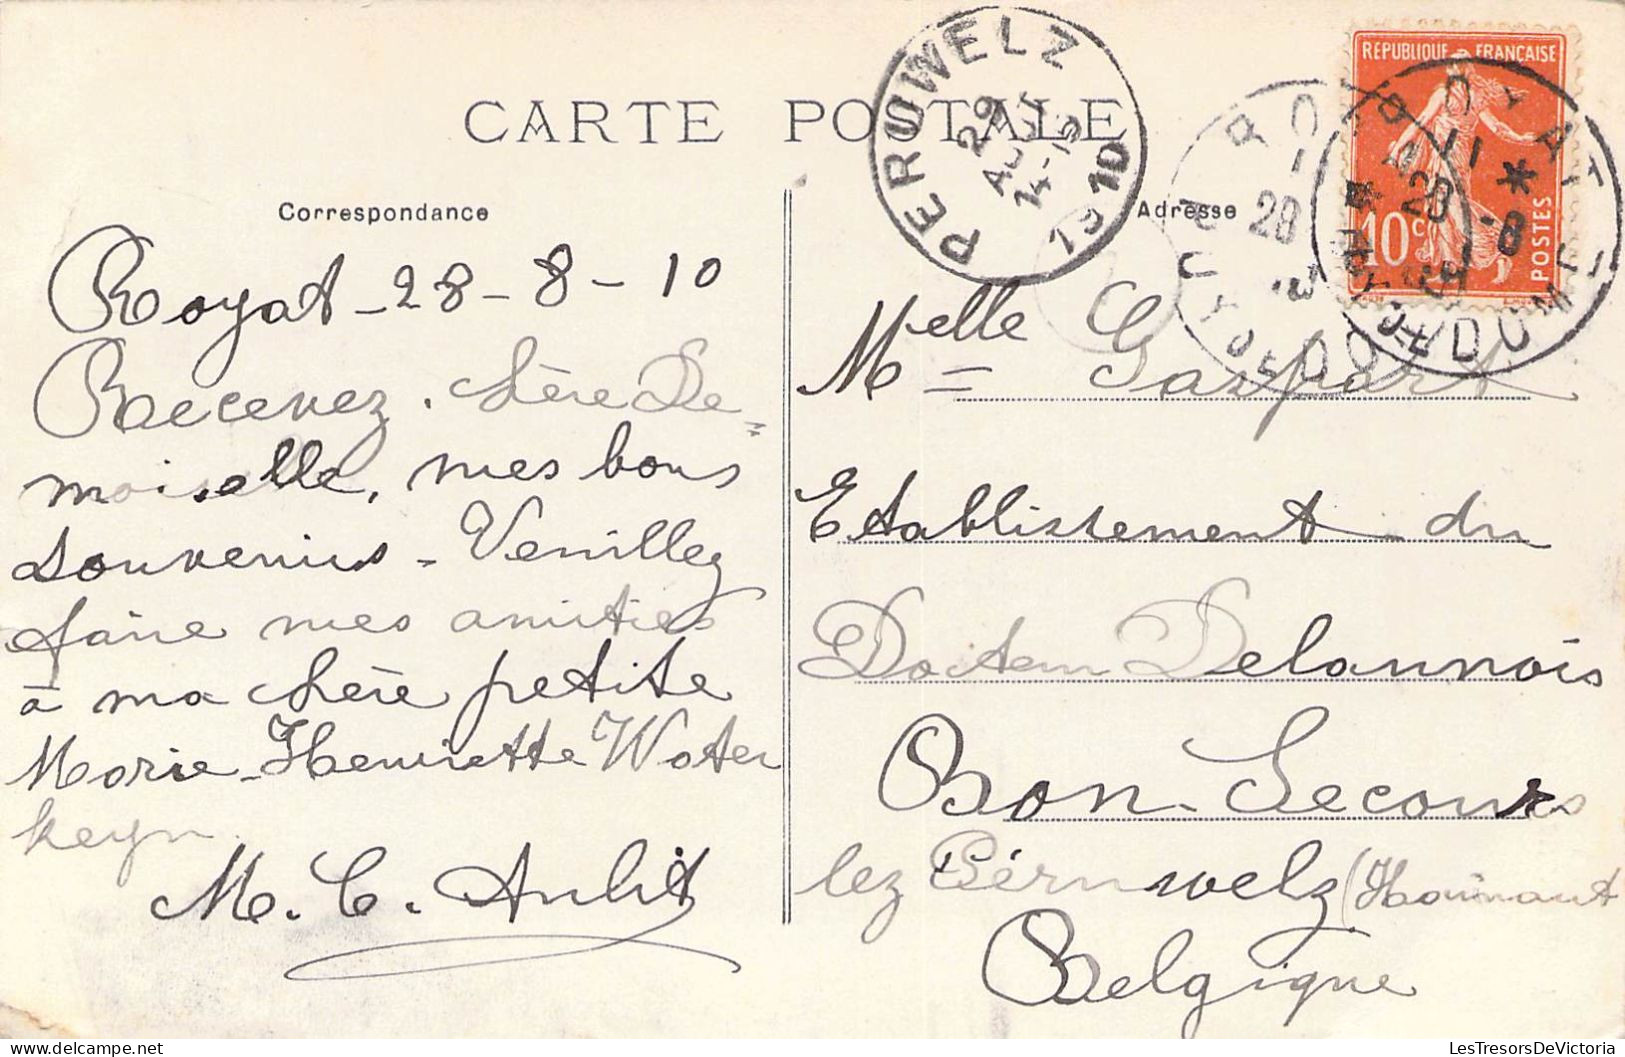 CARTE POSTALE
Correspondance
Royat - 28 - 8 - 10
Recevez, chère De=
moiselle, mes bons
souvenirs - Veuillez
faire mes amitiés
à ma chère petite
Marie-Henriette Water
keyn.
M. C. Aubit
Adresse
Melle Gaspart
Etablissement du
Docteur Delannois
Bon-Secours
lez Péruwelz (Hainaut
Belgique
PERUWELZ
29
AOUT
14-15
1910
REPUBLIQUE FRANÇAISE
10c
POSTES
ROYAT
11 *
28 -8
PUY DE DOME
ROYAT
28
PUY DE DOME
LesTresorsDeVictoria.com